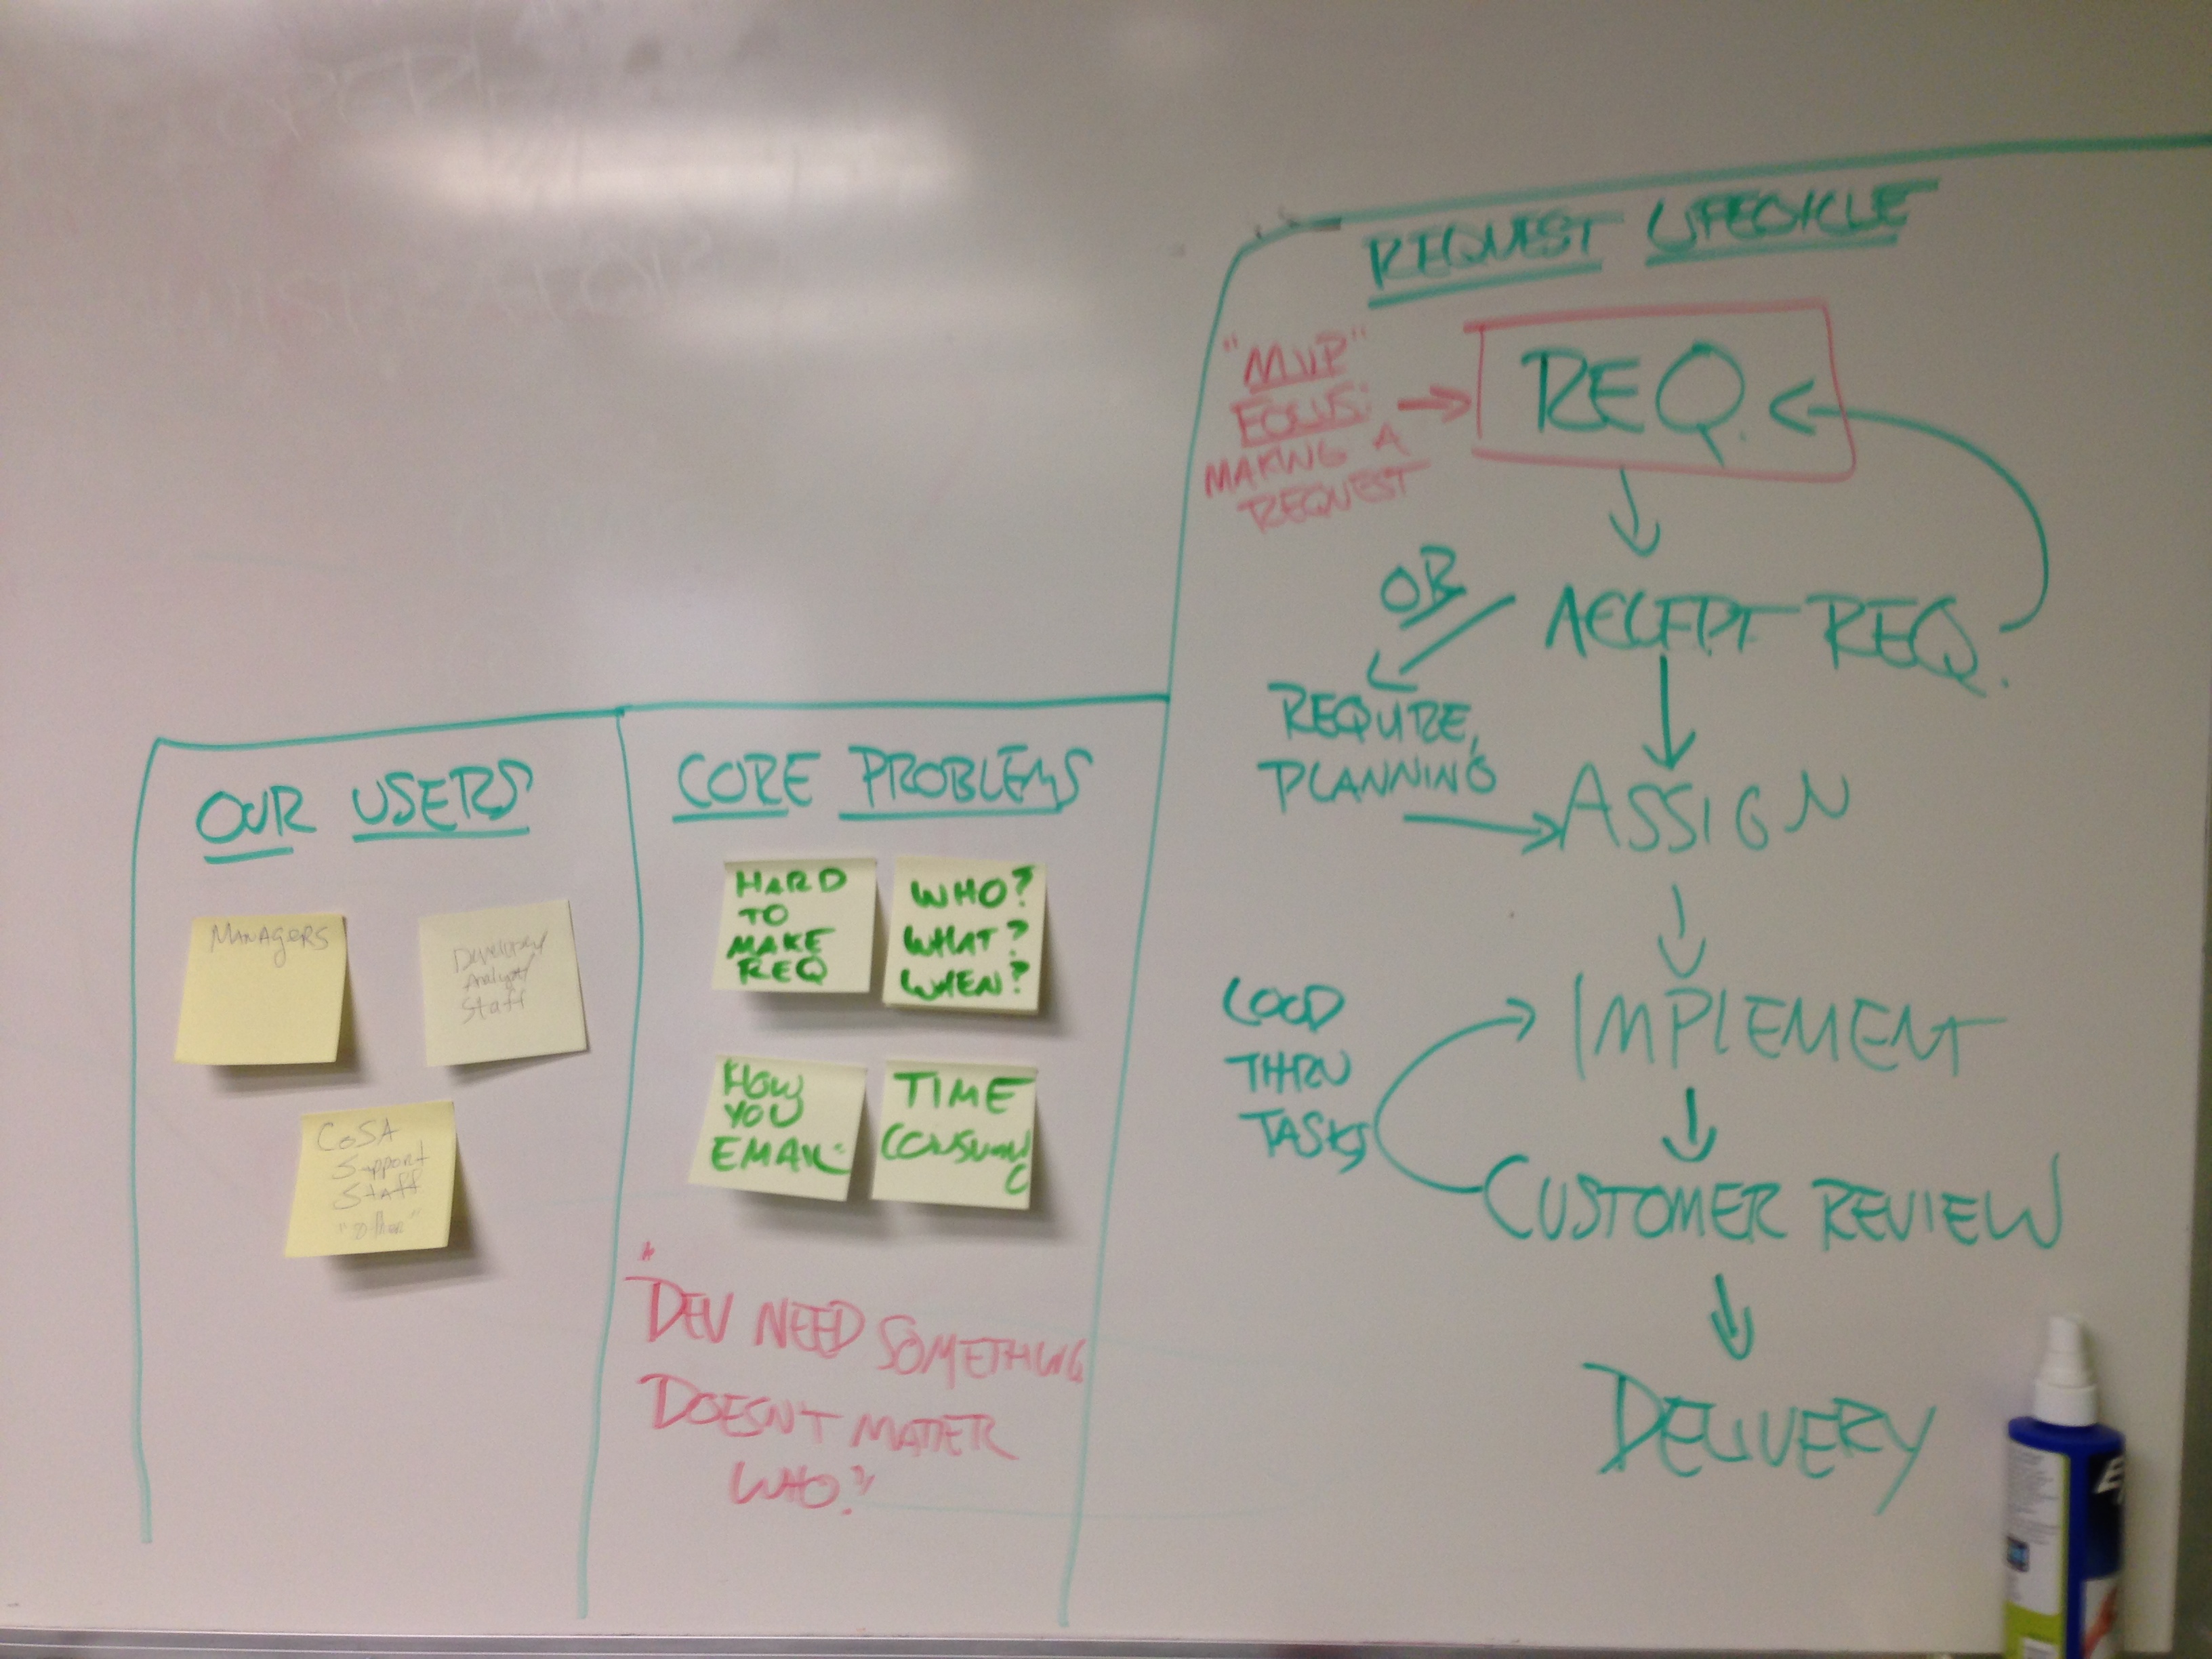 OUR USERS
MANAgeRS
Staff
CoSA
Support
Staff
"other"
CORE PROBLEMS
HARD
TO
MAKE
REQ
WHO?
WHAT?
WHEN?
HOW
YOU
EMAIL
TIME
CONSUMING
"
DEV NEED SOMETHING
DOESN'T MATTER
WHO."
REQUEST LIFECYCLE
"MVP"
FOCUS:
MAKING A
REQUEST
REQ.
OR
ACCEPT REQ.
REQUIRE,
PLANNING
ASSIGN
IMPLEMENT
LOOP
THRU
TASKS
CUSTOMER REVIEW
DELIVERY